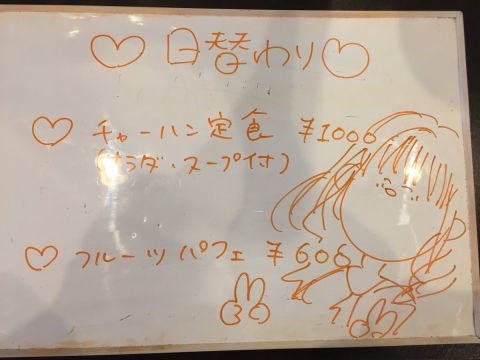 ♡日替わり♡
♡ チャーハン定食 ¥1000
(サラダ、スープ付)
♡ フルーツパフェ ¥606